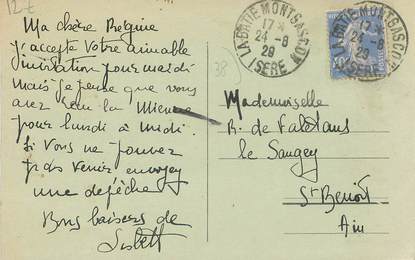 12 €
Ma chère Régine
j'accepte votre aimable
invitation pour mardi
Mais je pense que vous
avez eu la Mienne
pour lundi à midi.
Si vous ne pouvez
pas venir envoyez
une dépêche
Bons baisers de
38
LA BATIE MONTGASCON
17
24-8
29
ISERE
LA BATIE MONTGASCON
17
24-8
29
ISERE
Mademoiselle
R. de
le Saugey
St Benoit
Ain